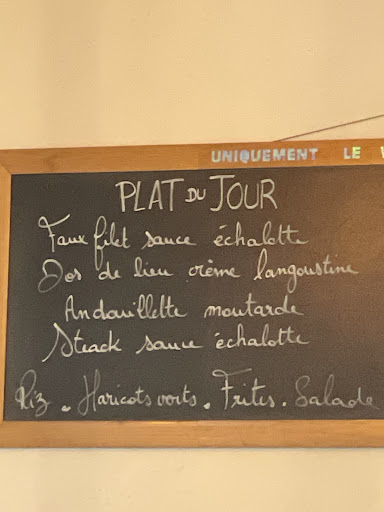 UNIQUEMENT LE
PLAT DU JOUR
Faux filet sauce échalotte
Dos de lieu crème langoustine
Andouillette moutarde
Steack sauce échalotte
Riz . Haricots verts . Frites . Salade